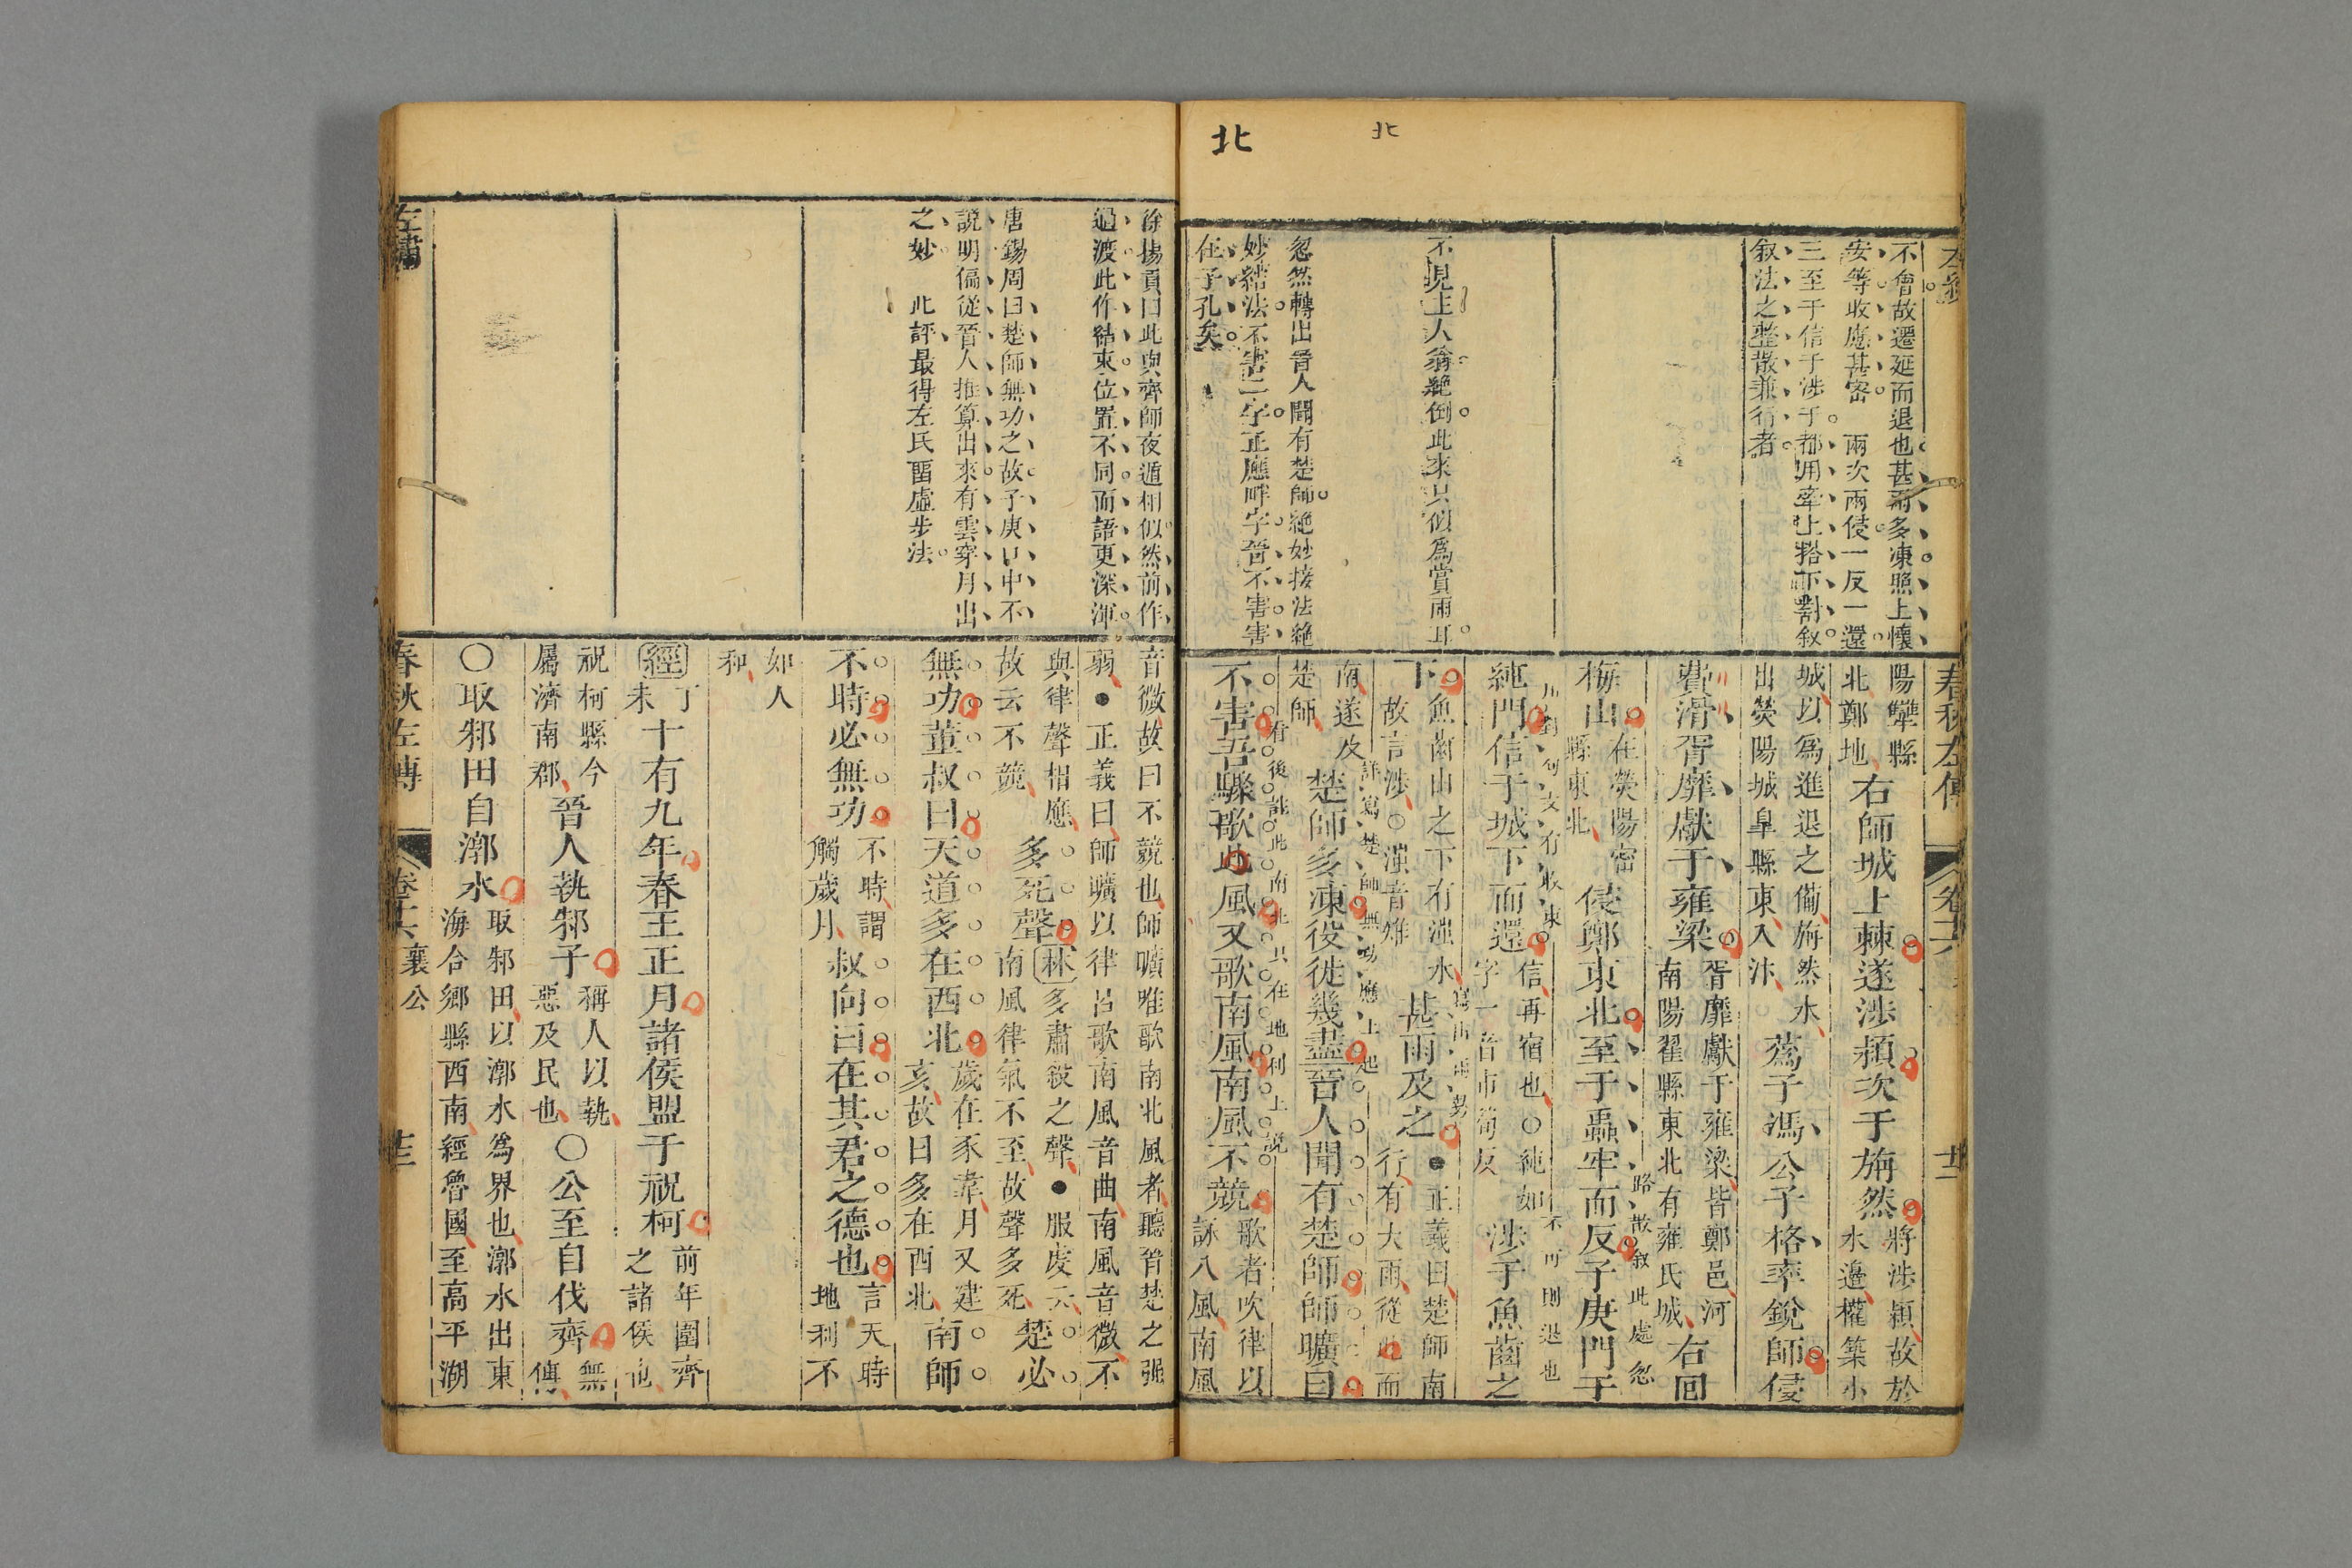 北
北
不會故遷延而退也甚雨多凍照上懷
安等收應甚密　兩次兩侵一反一還
三至于信于涉于都用牽上搭下對敘
敘法之整散兼行者
不見主人翁絕倒此來只似為賞雨耳
忽然轉出晉人聞有楚師絕妙接法絕
妙結法不害二字正應畔字晉不害害
在子孔矣
春秋左傳
陽犨縣
北鄭地右師城上棘遂涉潁次于旃然將涉潁故於
水邊權築小
城以為進退之備旃然水
出滎陽城皋縣東入汴蔿子馮公子格率銳師侵
費滑胥靡獻于雍梁胥靡獻于雍梁皆鄭邑河
南陽翟縣東北有雍氏城右回
梅山在滎陽密
縣東北侵鄭東北至于蟲牢而反子庚門于
路散敘此處忽
純門信于城下而還信再宿也○純如
字一音市荀反涉于魚齒之
下魚齒山之下有滍水
故言涉○滍音雉甚雨及之●正義曰楚師南
行有大雨從此而
南遂及
楚師楚師多凍役徒幾盡晉人聞有楚師師曠曰
詳寫楚師無功應上起
不害吾驟歌北風又歌南風南風不競歌者吹律以
詠八風南風
音微故曰不競也師曠唯歌南北風者聽晉楚之强
弱●正義曰師曠以律呂歌南風音曲南風音微不
與律聲相應
故云不競多死聲林多肅殺之聲●服虔云
南風律氣不至故聲多死楚必
無功董叔曰天道多在西北歲在豕韋月又建
亥故曰多在西北南師
不時必無功不時謂
觸歲月叔向曰在其君之德也言天時
地利不
如人
和
經丁
未十有九年春王正月諸侯盟于祝柯前年圍齊
之諸侯也
祝柯縣今
屬濟南郡晉人執邾子稱人以執
惡及民也○公至自伐齊無
傳
○取邾田自漷水取邾田以漷水為界也漷水出東
海合鄉縣西南經魯國至高平湖
徐揚貢曰此與齊師夜遁相似然前作
過渡此作結束位置不同而語更深渾
唐錫周曰楚師無功之故子庚口中不
說明偏從晉人推算出來有雲穿月出
之妙　此評最得左氏畱虛步法
左繡
春秋左傳
卷十六襄公